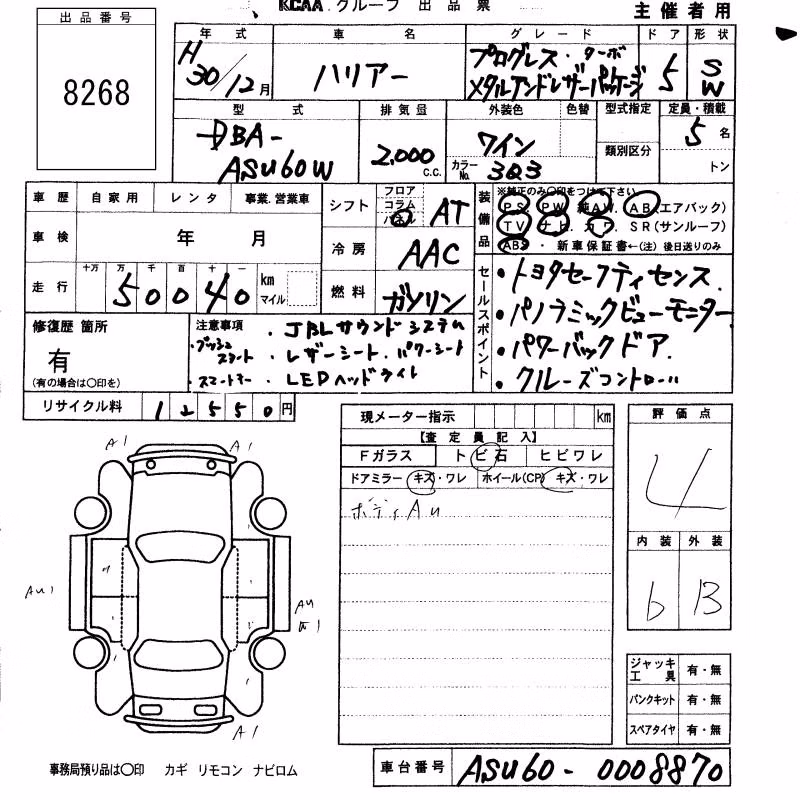 KCAA グループ 出品票
主催者用
出品番号
8268
年式 車名 グレード ドア 形状
H30/12月 ハリアー プログレス・ターボ
メタルアンドレザーパッケージ 5 SW
型式 排気量 外装色 色替 型式指定 定員・積載
DBA-
ASU60W 2.000 c.c. ワイン 5名
カラーNo. 3Q3 類別区分 トン
車歴 自家用 レンタ 事業.営業車
シフト フロア コラム パネル AT
装備品 ※純正のみ〇印をつけて下さい
PS PW 純AW. AB(エアバック)
TV ナビ. カワ. SR(サンルーフ)
ABS ・ 新車保証書←(注) 後日送りのみ
車検 年 月
冷房 AAC
走行 十万 万 千 百 十 一
50040 km マイル
燃料 ガソリン
セールスポイント
・トヨタセーフティセンス.
・パノラミックビューモニター
・パワーバックドア.
・クルーズコントロール
修復歴 箇所
有
(有の場合は〇印を)
注意事項 ・JBLサウンドシステム
・プッシュスタート ・レザーシート. パワーシート
・スマートキー ・LEDヘッドライト
リサイクル料 12550円
現メーター指示 km
【査定員記入】
Fガラス トビ石 ヒビワレ
ドアミラー キズ・ワレ ホイール(CP) キズ・ワレ
ボディAu
評価点
4
内装 外装
b B
A1 A1
Au1
Au
A1
ジャッキ工具 有・無
パンクキット 有・無
スペアタイヤ 有・無
事務局預り品は〇印 カギ リモコン ナビロム
車台番号 ASU60-0008870